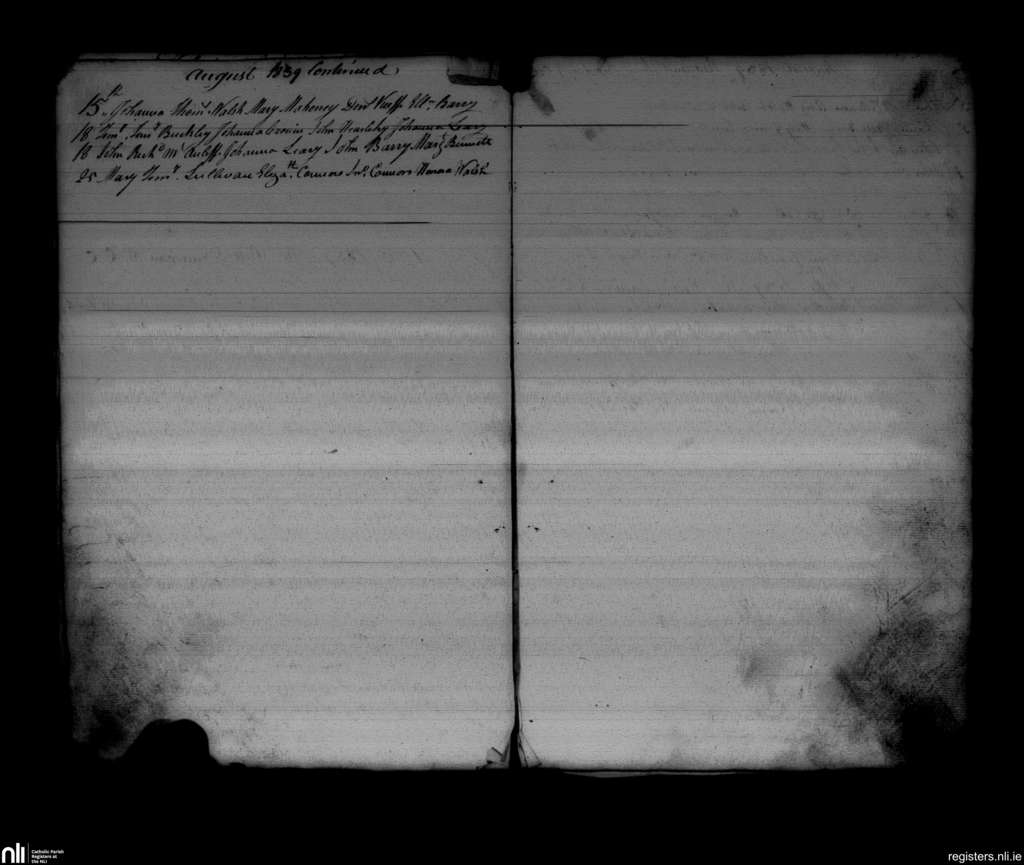 August 1839 Continued,
15th Johanna Thos. Walsh Mary Mahoney Denis Keeffe Barry
18 Timy. Timy. Buckley Johanna Cronin John Johanna Leary
18 John Richd. McAuliffe Johanna Leary John Barry Marg Bennett
25 Mary Timy. Sullivan Eliza. Connors Jno. Connors Walsh
nli
Catholic Parish
Registers at
the NLI
registers.nli.ie